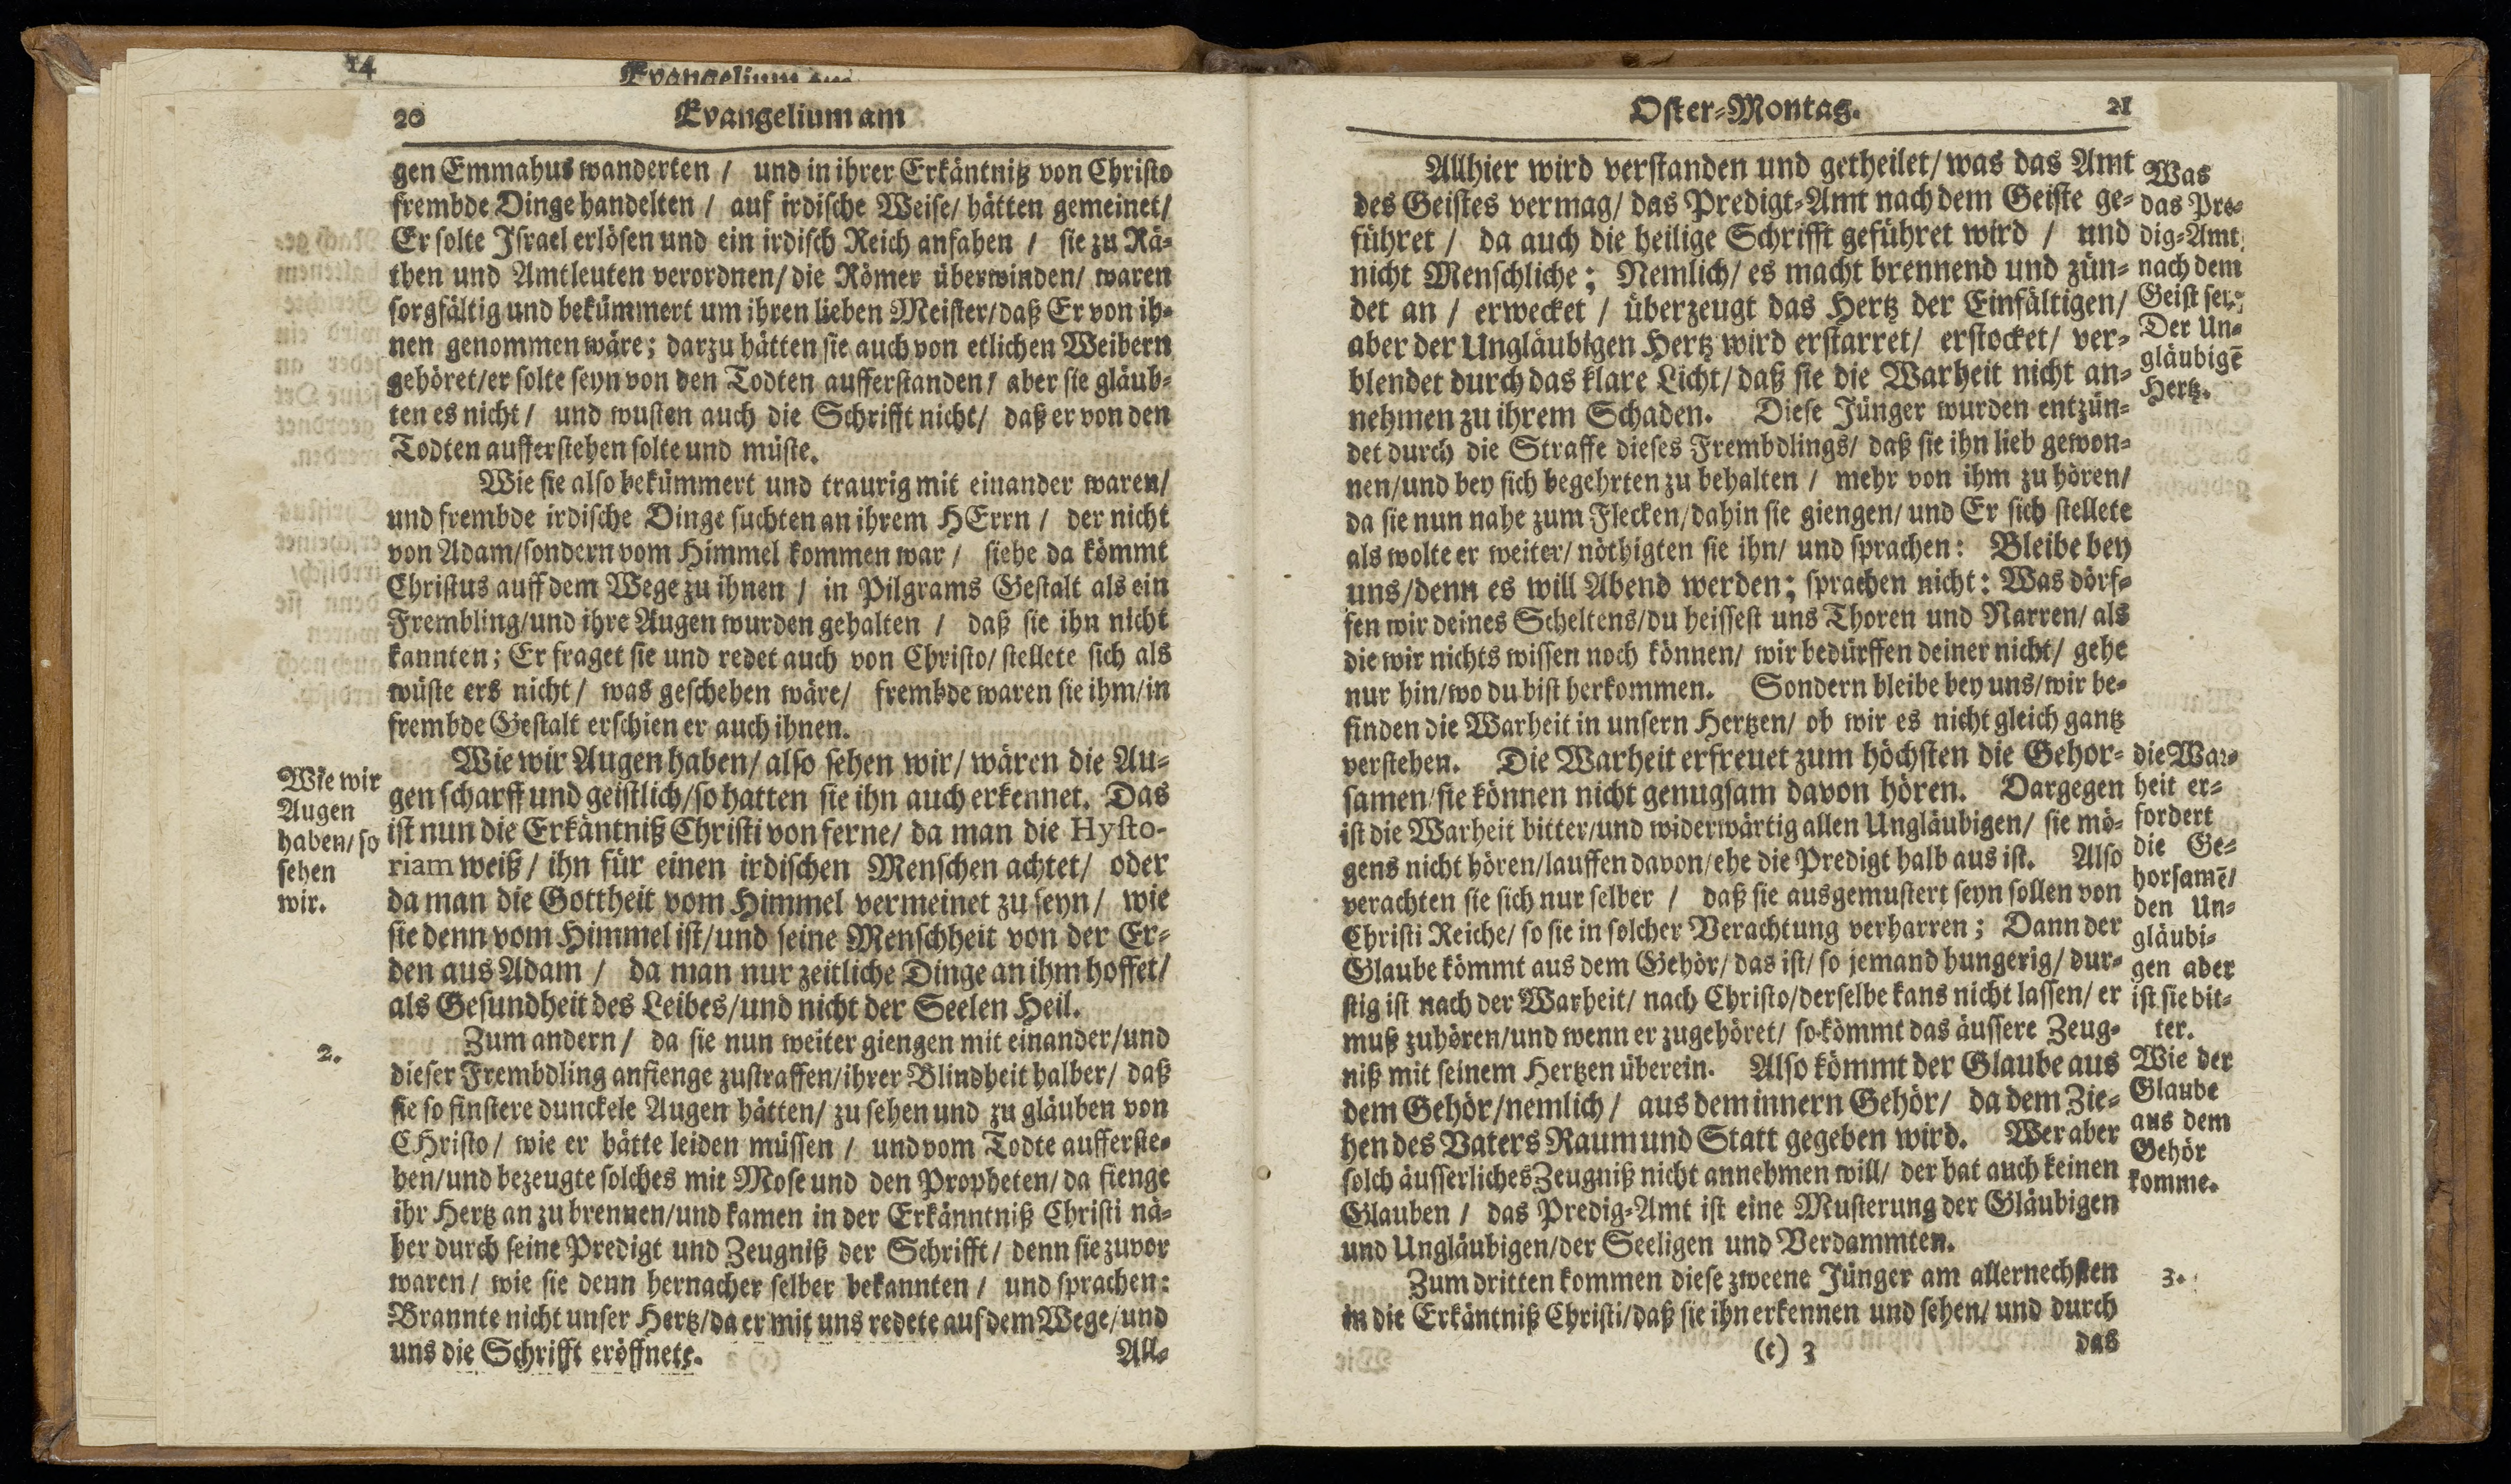 14
Evangelium am
20 Evangelium am
gen Emmahus wanderten / und in ihrer Erkäntniß von Christo
frembde Dinge handelten / auf irdische Weise/ hätten gemeinet/
Er solte Israel erlösen und ein irdisch Reich anfahen / sie zu Rä-
then und Amtleuten verordnen/ die Römer überwinden/ waren
sorgfältig und bekümmert um ihren lieben Meister/ daß Er von ih-
nen genommen wäre; darzu hätten sie auch von etlichen Weibern
gehöret/ er solte seyn von den Todten aufferstanden/ aber sie gläub-
ten es nicht/ und wusten auch die Schrifft nicht/ daß er von den
Todten aufferstehen solte und müste.
Wie sie also bekümmert und traurig mit einander waren/
und frembde irdische Dinge suchten an ihrem HErrn / der nicht
von Adam/ sondern vom Himmel kommen war / siehe da kömmt
Christus auff dem Wege zu ihnen / in Pilgrams Gestalt als ein
Frembling/ und ihre Augen wurden gehalten / daß sie ihn nicht
kannten; Er fraget sie und redet auch von Christo/ stellete sich als
wüste ers nicht/ was geschehen wäre/ frembde waren sie ihm/ in
frembde Gestalt erschien er auch ihnen.
Wie wir Augen haben/ also sehen wir/ wären die Au-
gen scharff und geistlich/ so hatten sie ihn auch erkennet. Das
ist nun die Erkäntniß Christi von ferne/ da man die Hysto-
riam weiß/ ihn für einen irdischen Menschen achtet/ oder
da man die Gottheit vom Himmel vermeinet zu seyn/ wie
sie denn vom Himmel ist/ und seine Menschheit von der Er-
den aus Adam / da man nur zeitliche Dinge an ihm hoffet/
als Gesundheit des Leibes/ und nicht der Seelen Heil.
Zum andern/ da sie nun weiter giengen mit einander/ und
dieser Frembdling anfienge zustraffen/ ihrer Blindheit halber/ daß
sie so finstere dunckele Augen hätten/ zu sehen und zu gläuben von
CHristo/ wie er hätte leiden müssen / und vom Todte aufferste-
hen/ und bezeugte solches mit Mose und den Propheten/ da fienge
ihr Hertz an zu brennen/ und kamen in der Erkänntniß Christi nä-
her durch seine Predigt und Zeugniß der Schrifft/ denn sie zuvor
waren/ wie sie denn hernacher selber bekannten / und sprachen:
Brannte nicht unser Hertz/ da er mit uns redete auf dem Wege/ und
uns die Schrifft eröffnete.
All-
Wie wir
Augen
haben/ so
sehen
wir.
2.
Oster-Montag. 21
Allhier wird verstanden und getheilet/ was das Amt
des Geistes vermag/ das Predigt-Amt nach dem Geiste ge-
führet / da auch die heilige Schrifft geführet wird / und
nicht Menschliche; Nemlich/ es macht brennend und zün-
det an / erwecket / überzeugt das Hertz der Einfältigen/
aber der Ungläubigen Hertz wird erstarret/ erstocket/ ver-
blendet durch das klare Licht/ daß sie die Warheit nicht an-
nehmen zu ihrem Schaden. Diese Jünger wurden entzün-
det durch die Straffe dieses Frembdlings/ daß sie ihn lieb gewon-
nen/ und bey sich begehrten zu behalten / mehr von ihm zu hören/
da sie nun nahe zum Flecken/ dahin sie giengen/ und Er sich stellete
als wolte er weiter/ nöthigten sie ihn/ und sprachen: Bleibe bey
uns/ denn es will Abend werden; sprachen nicht: Was dörf-
fen wir deines Scheltens/ du heissest uns Thoren und Narren/ als
die wir nichts wissen noch können/ wir bedürffen deiner nicht/ gehe
nur hin/ wo du bist herkommen. Sondern bleibe bey uns/ wir be-
finden die Warheit in unsern Hertzen/ ob wir es nicht gleich gantz
verstehen. Die Warheit erfreuet zum höchsten die Gehor-
samen/ sie können nicht genugsam davon hören. Dargegen
ist die Warheit bitter/ und widerwärtig allen Ungläubigen/ sie mö-
gens nicht hören/ lauffen davon/ ehe die Predigt halb aus ist. Also
verachten sie sich nur selber / daß sie ausgemustert seyn sollen von
Christi Reiche/ so sie in solcher Verachtung verharren; Dann der
Glaube kömmt aus dem Gehör/ das ist/ so jemand hungerig/ dur-
stig ist nach der Warheit/ nach Christo/ derselbe kans nicht lassen/ er
muß zuhören/ und wenn er zugehöret/ so kömmt das äussere Zeug-
niß mit seinem Hertzen überein. Also kömmt der Glaube aus
dem Gehör/ nemlich / aus dem innern Gehör/ da dem Zie-
hen des Vaters Raum und Statt gegeben wird. Wer aber
solch äusserliches Zeugniß nicht annehmen will/ der hat auch keinen
Glauben / das Predig-Amt ist eine Musterung der Gläubigen
und Ungläubigen/ der Seeligen und Verdammten.
Zum dritten kommen diese zweene Jünger am allernechsten
in die Erkäntniß Christi/ daß sie ihn erkennen und sehen/ und durch
(c) 3 das
Was
das Pre-
dig-Amt
nach dem
Geist sey.
Der Un-
gläubigē
Hertz.
die War-
heit er-
fordert
die Ge-
horsamē/
den Un-
gläubi-
gen aber
ist sie bit-
ter.
Wie der
Glaube
aus dem
Gehör
komme.
3.